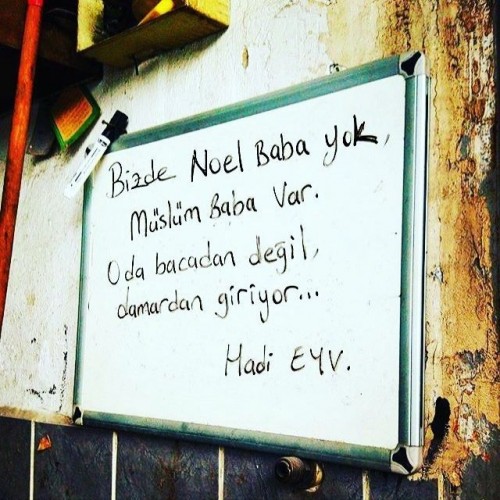 Bizde Noel Baba yok,
Müslüm Baba Var.
O da bacadan değil,
damardan giriyor...
Hadi EYV.